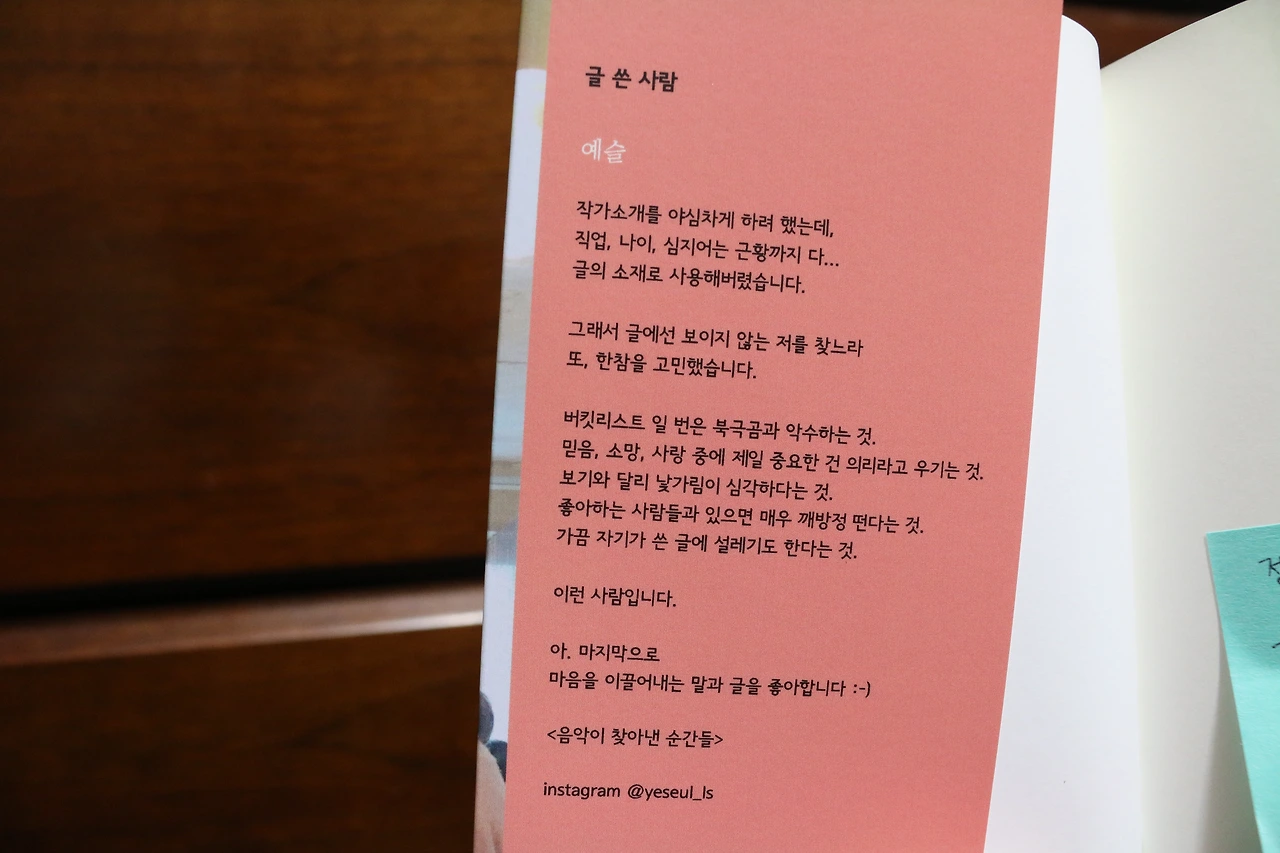 글 쓴 사람
예슬
작가소개를 야심차게 하려 했는데,
직업, 나이, 심지어는 근황까지 다...
글의 소재로 사용해버렸습니다.
그래서 글에선 보이지 않는 저를 찾느라
또, 한참을 고민했습니다.
버킷리스트 일 번은 북극곰과 악수하는 것.
믿음, 소망, 사랑 중에 제일 중요한 건 의리라고 우기는 것.
보기와 달리 낯가림이 심각하다는 것.
좋아하는 사람들과 있으면 매우 깨방정 떤다는 것.
가끔 자기가 쓴 글에 설레기도 한다는 것.
이런 사람입니다.
아. 마지막으로
마음을 이끌어내는 말과 글을 좋아합니다 :-)
<음악이 찾아낸 순간들>
instagram @yeseul_ls